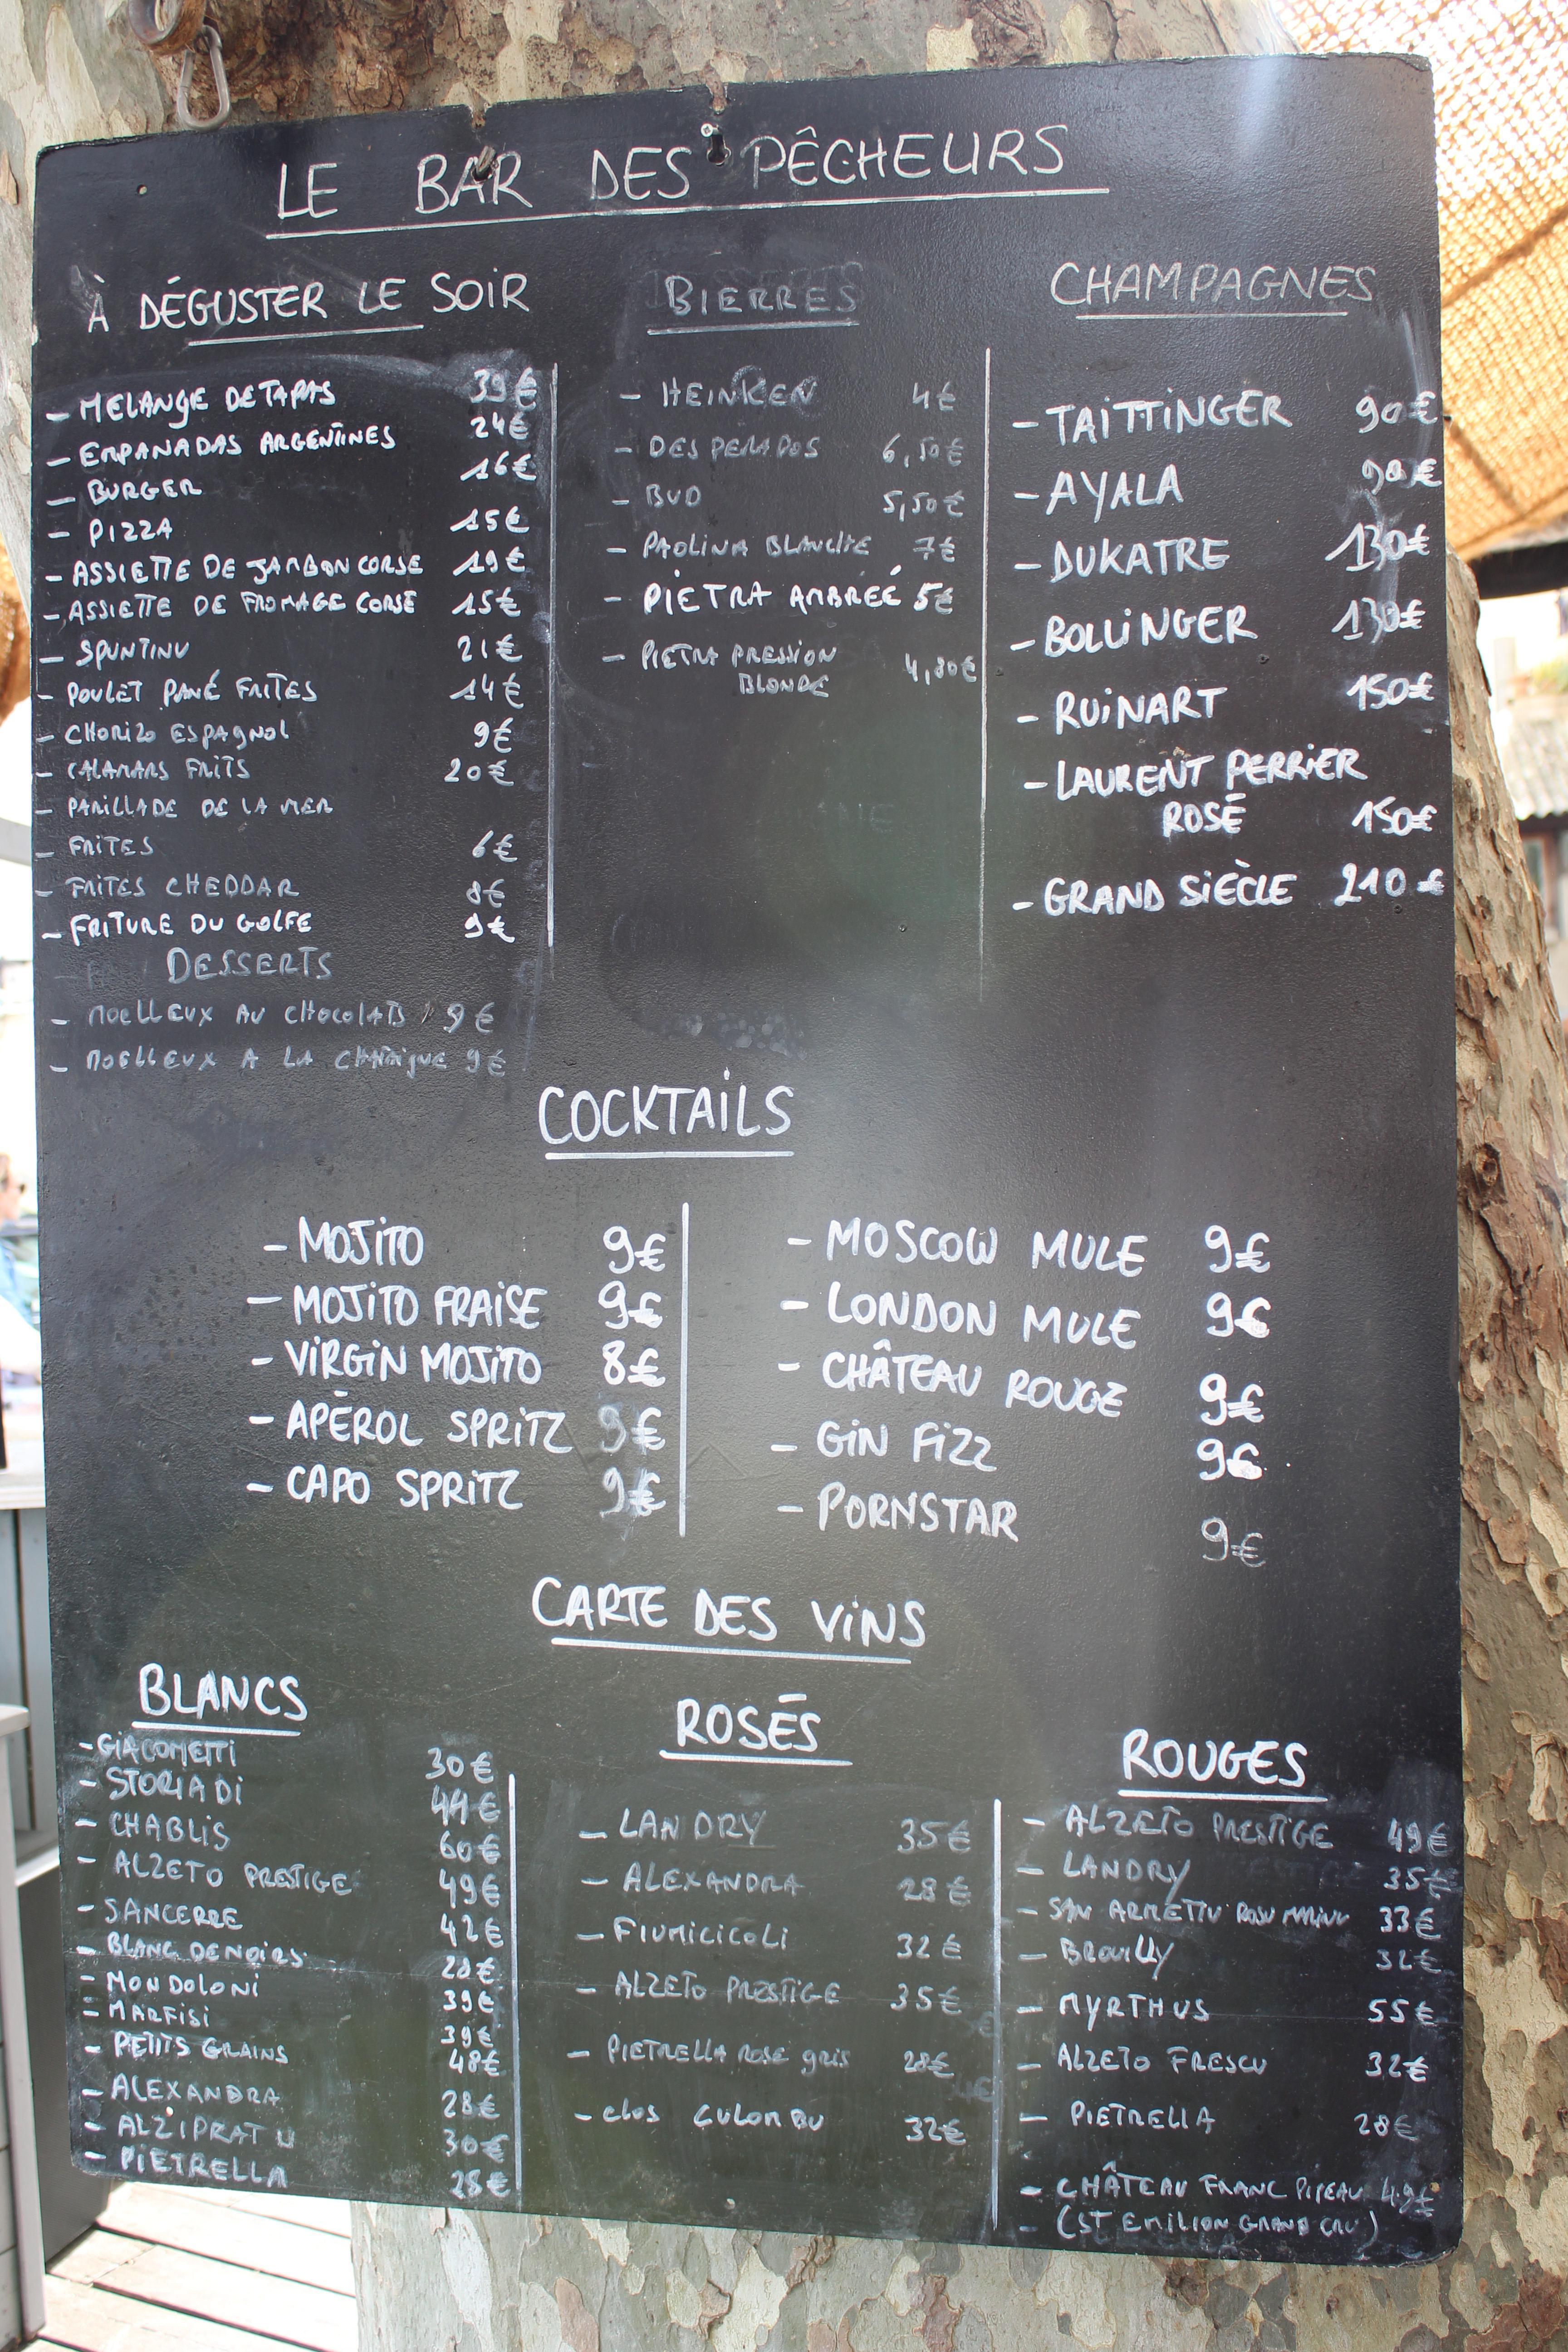 LE BAR DES PÊCHEURS
À DÉGUSTER LE SOIR
- MELANGE DE TAPAS 39€
- EMPANADAS ARGENTINES 24€
- BURGER 16€
- PIZZA 15€
- ASSIETTE DE JAMBON CORSE 19€
- ASSIETTE DE FROMAGE CORSE 15€
- SPUNTINU 21€
- POULET PANÉ FRITES 14€
- CHORIZO ESPAGNOL 9€
- CALAMARS FRITS 20€
- PARILLADE DE LA MER
- FRITES 6€
- FRITES CHEDDAR 8€
- FRITURE DU GOLFE 9€
DESSERTS
- MOELLEUX AU CHOCOLATS 9€
- MOELLEUX A LA 9€
BIERRES
- HEINKEN 4€
- DESPERADOS 6,50€
- BUD 5,50€
- PAOLINA BLANCHE 7€
- PIETRA AMBREÉ 5€
- PIETRA PRESSION
BLONDE 4,80€
CHAMPAGNES
- TAITTINGER 90€
- AYALA 90€
- DUKATRE 130€
- BOLLINGER 130€
- RUINART 150€
- LAURENT PERRIER
ROSÉ 150€
- GRAND SIÈCLE 210€
COCKTAILS
- MOJITO 9€
- MOJITO FRAISE 9€
- VIRGIN MOJITO 8€
- APÉROL SPRITZ 9€
- CAPO SPRITZ 9€
- MOSCOW MULE 9€
- LONDON MULE 9€
- CHÂTEAU ROUGE 9€
- GIN FIZZ 9€
- PORNSTAR 9€
CARTE DES VINS
BLANCS
- GIACOMETTI 30€
- STORIA DI 44€
- CHABLIS 60€
- ALZETO PRESTIGE 49€
- SANCERRE 42€
- BLANC DE NOIRS 28€
- MONDOLONI 39€
- MARFISI 39€
- PETITS GRAINS 48€
- ALEXANDRA 28€
- ALZIPRATU 30€
- PIETRELLA 28€
ROSÉS
- LANDRY 35€
- ALEXANDRA 28€
- FIUMICICOLI 32€
- ALZETO PRESTIGE 35€
- PIETRELLA ROSE GRIS 28€
- CLOS CULOMBU 32€
ROUGES
- ALZETO PRESTIGE 49€
- LANDRY 35€
- SAN ARMETTU ROSU MARINU 33€
- BROUILLY 32€
- MYRTHUS 55€
- ALZETO FRESCU 32€
- PIETRELLA 28€
- CHÂTEAU FRANC PIPEAU 49€
- (ST EMILION GRAND CRU)